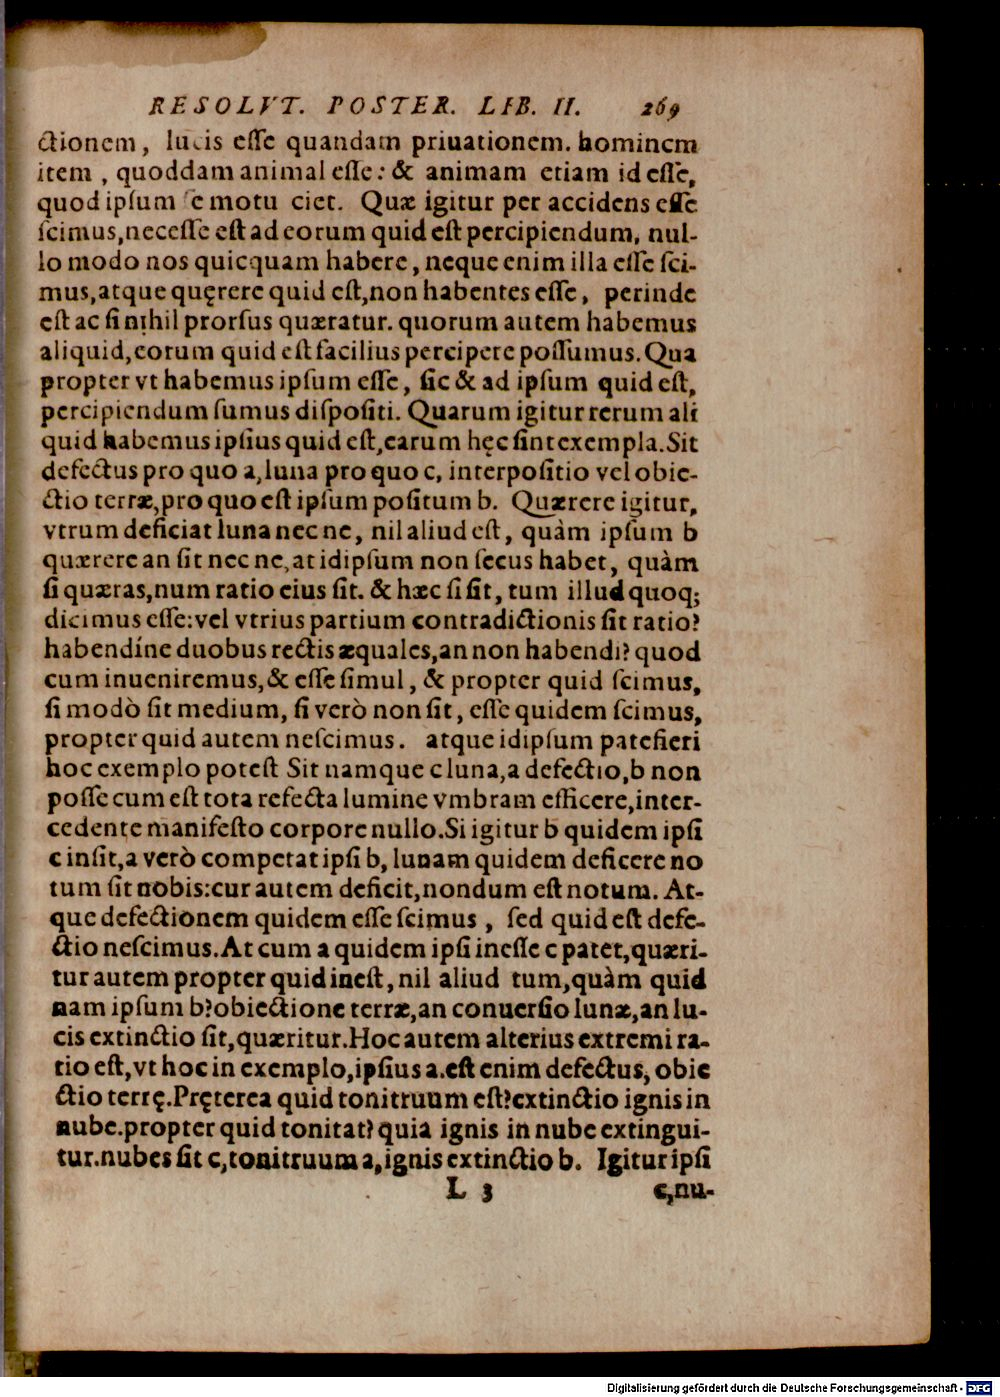 RESOLVT. POSTER. LIB. II. 269
ctionem, lucis esse quandam priuationem. hominem
item, quoddam animal esse: & animam etiam id esse,
quod ipsum se motu ciet. Quæ igitur per accidens esse
scimus, necesse est ad eorum quid est percipiendum, nul-
lo modo nos quicquam habere, neque enim illa esse sci-
mus, atque quęrere quid est, non habentes esse, perinde
est ac si nihil prorsus quæratur. quorum autem habemus
aliquid, eorum quid est facilius percipere possumus. Qua
propter vt habemus ipsum esse, sic & ad ipsum quid est,
percipiendum sumus dispositi. Quarum igitur rerum ali
quid habemus ipsius quid est, earum hęc sint exempla. Sit
defectus pro quo a, luna pro quo c, interpositio vel obie-
ctio terræ, pro quo est ipsum positum b. Quærere igitur,
vtrum deficiat luna nec ne, nil aliud est, quàm ipsum b
quærere an sit nec ne, at idipsum non secus habet, quàm
si quæras, num ratio eius sit. & hæc si sit, tum illud quoq;
dicimus esse: vel vtrius partium contradictionis sit ratio?
habendíne duobus rectis æquales, an non habendi? quod
cum inueniremus, & esse simul, & propter quid scimus,
si modò sit medium, si verò non sit, esse quidem scimus,
propter quid autem nescimus. atque idipsum patefieri
hoc exemplo potest Sit namque c luna, a defectio, b non
posse cum est tota refecta lumine vmbram efficere, inter-
cedente manifesto corpore nullo. Si igitur b quidem ipsi
c insit, a verò competat ipsi b, lunam quidem deficere no
tum sit nobis: cur autem deficit, nondum est notum. At-
que defectionem quidem esse scimus, sed quid est defe-
ctio nescimus. At cum a quidem ipsi inesse c patet, quæri-
tur autem propter quid inest, nil aliud tum, quàm quid
nam ipsum b? obiectione terræ, an conuersio lunæ, an lu-
cis extinctio sit, quæritur. Hoc autem alterius extremi ra-
tio est, vt hoc in exemplo, ipsius a. est enim defectus, obie
ctio terrę. Pręterea quid tonitruum est? extinctio ignis in
nube. propter quid tonitat? quia ignis in nube extingui-
tur. nubes sit c, tonitruum a, ignis extinctio b. Igitur ipsi
L 3 c, nu-
Digitalisierung gefördert durch die Deutsche Forschungsgemeinschaft - DFG